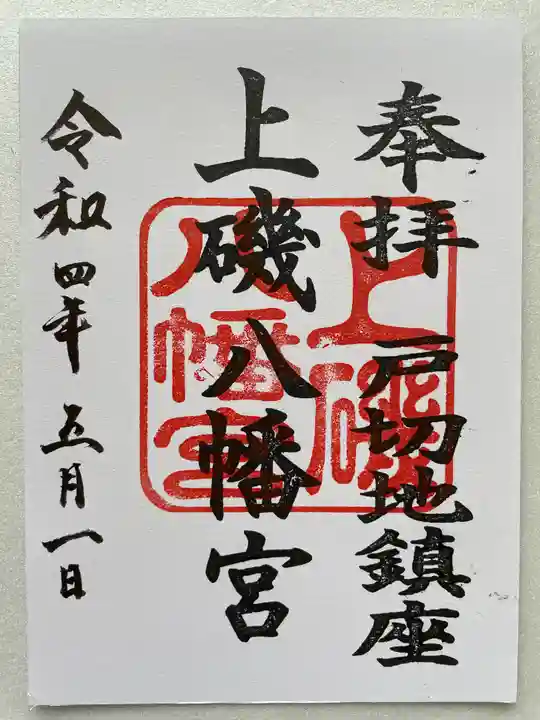 奉拝 戸切地鎮座
上磯八幡宮
上磯
八幡宮
令和四年 五月一日